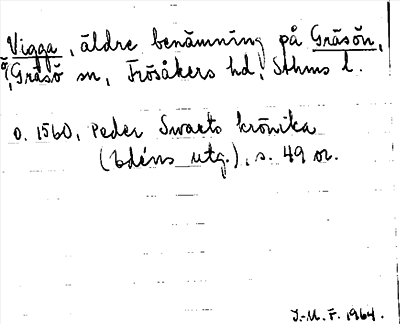 Vigga, äldre benämning på Gräsön,
ö, Gräsö sn, Frösåkers hd, Sthms l.
o. 1560, Peder Swarts krönika
(Edéns utg.), s. 49 o.
J.-M. F. 1964.